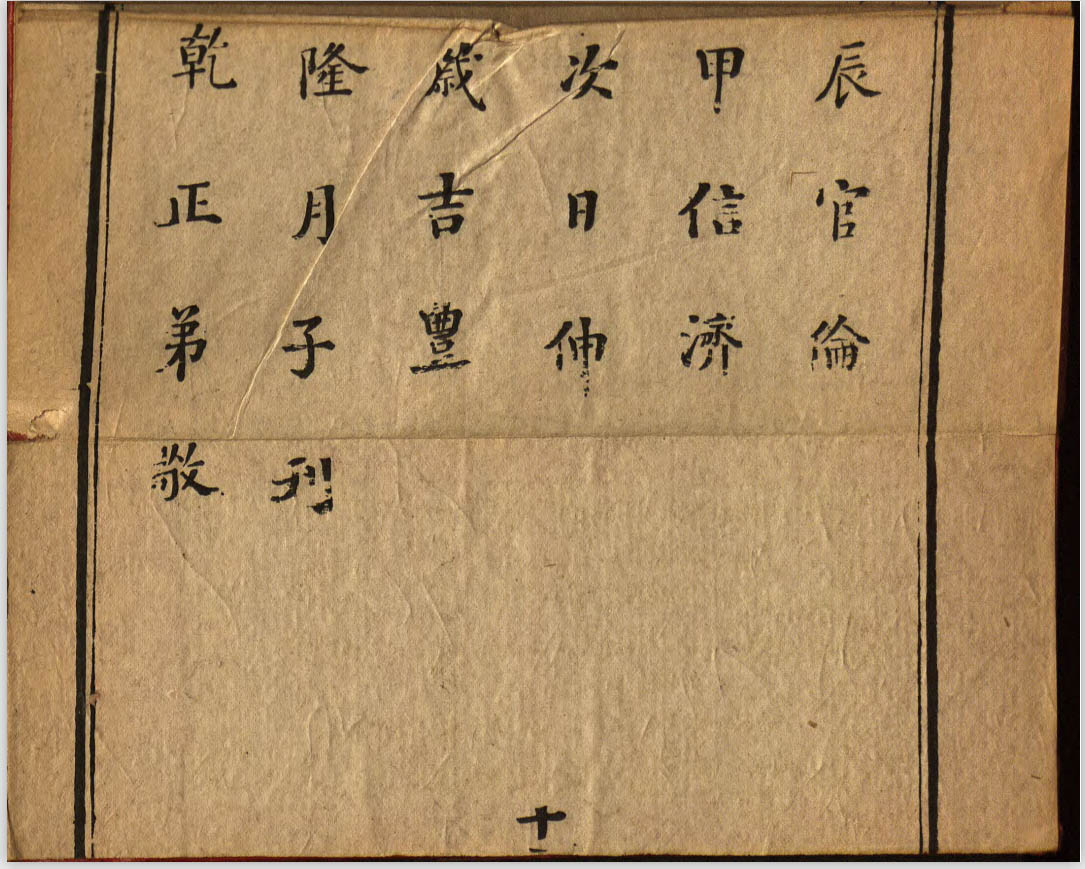 乾隆歲次甲辰
正月吉日信官
弟子豐伸濟倫
敬刊
十